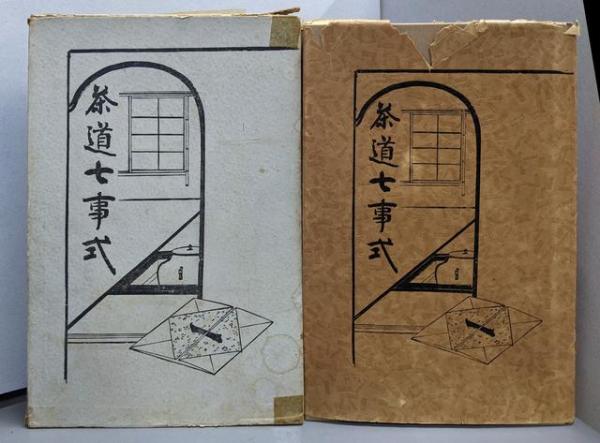 茶道七事式
茶道七事式